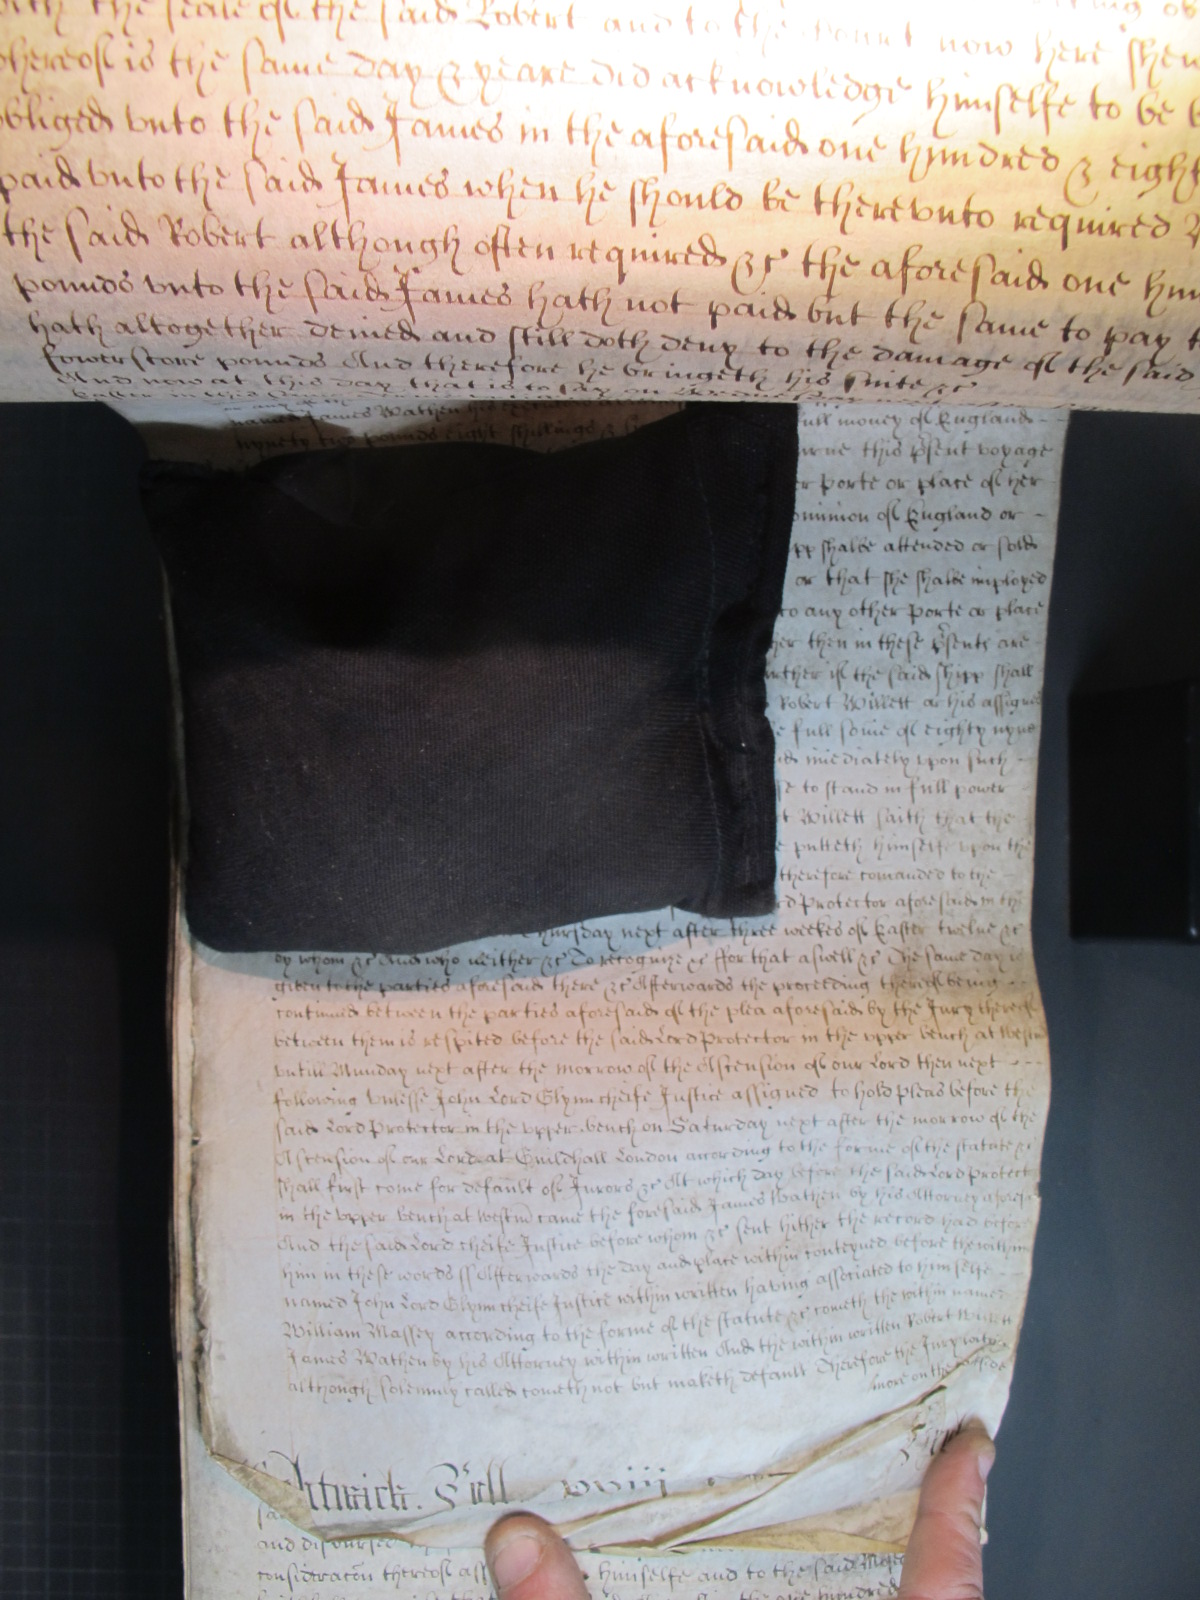 with the seale of the said Robert and to the Court now here shew
whereof is the same day & yeare did acknowledge himselfe to be
obliged vnto the said James in the aforesaid one hundred & eight
paid vnto the said James when he should be therevnto required
the said Robert although often required &c the aforesaid one hun
pounds vnto the said James hath not paid but the same to pay
hath altogether denied and still doth deny to the damage of the said
fowerscore pounds And therefore he bringeth his suite &c
And now at this day that is to say on
named James Wathen his
nynety two pounds eight shillings &
full money of England
this psent voyage
Porte or place of her
ominion of England or
pp shalbe attended or sold
or that she shalbe imployed
to any other Porte or place
her then in these psents are
urther if the said shipp shall
Robert Willett or his assignes
full some of eighty nyne
imediately vpon such
to stand in full power
Willett saith that the
putteth himselfe vpon the
therefore comanded to the
rd Protector aforesaid in the
Thursday next after three weekes of Easter twelve &c
by whom &c And who neither &c To recognize &c ffor that aswell &c The same day is
given to the parties aforesaid there &c Afterwards the proceeding thereof being
continued between the parties aforesaid of the plea aforesaid by the Jury thereof
between them is respited before the said Lord Protector in the vpper bench at Westm
vntill Munday next after the morrow of the Ascension of our Lord then next
following vnlesse John Lord Glynn cheife Justice assigned to hold pleas before the
said Lord Protector in the vpper bench on Saturday next after the morrow of the
Ascension of our Lord at Guildhall London according to the forme of the statute &c
shall first come for default of Jurors &c At which day before the said Lord Protect
in the vpper bench at Westm came the foresaid James Wathen by his Attorney aforesa
And the said Lord cheife Justice before whom &c sent hither the record had before
him in these words ss Afterwards the day and place within conteyned before the within
named John Lord Glynn cheife Justice within written having associated to himselfe
William Massey according to the forme of the statute &c cometh the within named
James Wathen by his Attorney within written And the within written Robert Willett
although solemnly called cometh not but maketh default Therefore the Jury
more on the
htwick. Roll xviii
and
consideracon thereof himselfe and to the said
one hundred